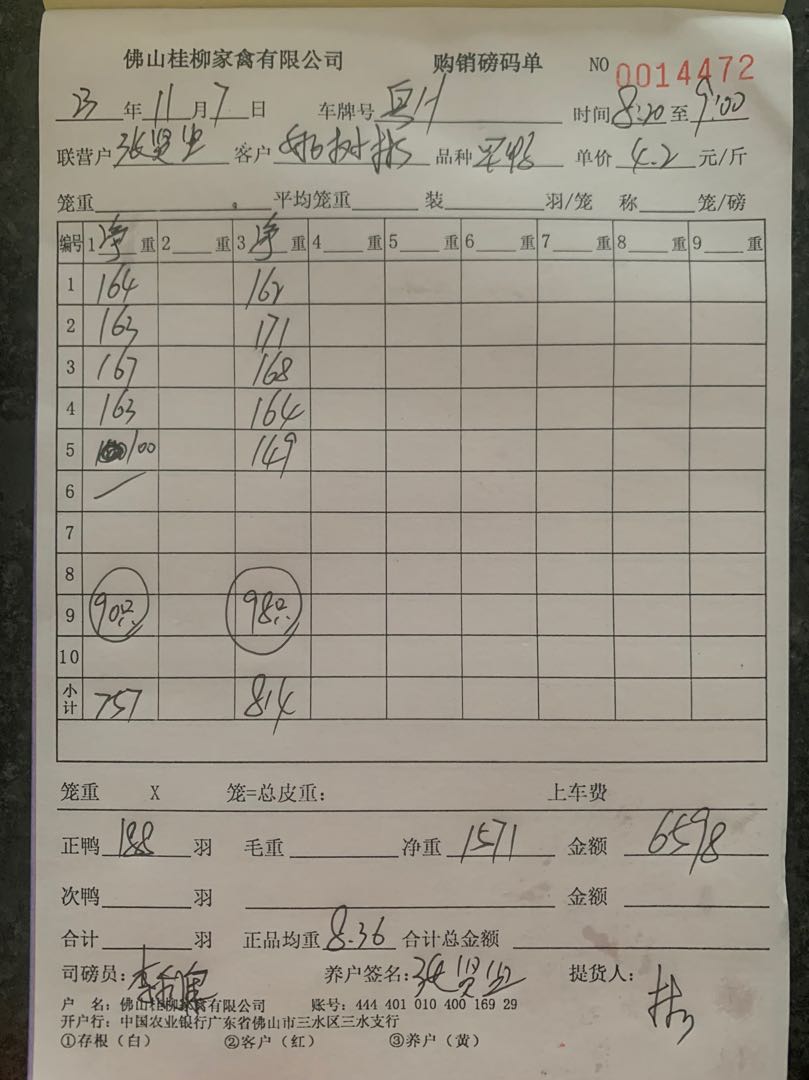 佛山桂柳家禽有限公司 购销磅码单 NO 0014472
23 年 11 月 7 日 车牌号 时间 8:20 至 9:00
联营户 张贤 客户 品种 单价 4.2 元/斤
笼重 平均笼重 装 羽/笼 称 笼/磅
编号 1 净 重 2 重 3 净 重 4 重 5 重 6 重 7 重 8 重 9 重
1 164 162
2 163 171
3 167 168
4 163 164
5 100 149
6
7
8
9 90只 98只
10
小计 757 814
笼重 X 笼=总皮重: 上车费
正鸭 188 羽 毛重 净重 1571 金额 6598
次鸭 羽 金额
合计 羽 正品均重 8.36 合计总金额
司磅员: 养户签名: 张贤 提货人:
户 名: 佛山桂柳家禽有限公司 账号: 444 401 010 400 169 29
开户行: 中国农业银行广东省佛山市三水区三水支行
①存根(白) ②客户(红) ③养户(黄)